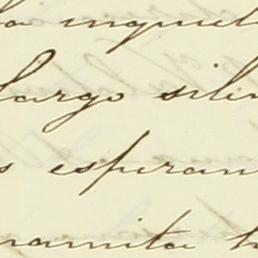 la inquiet
largo silen
s esperan
namita t